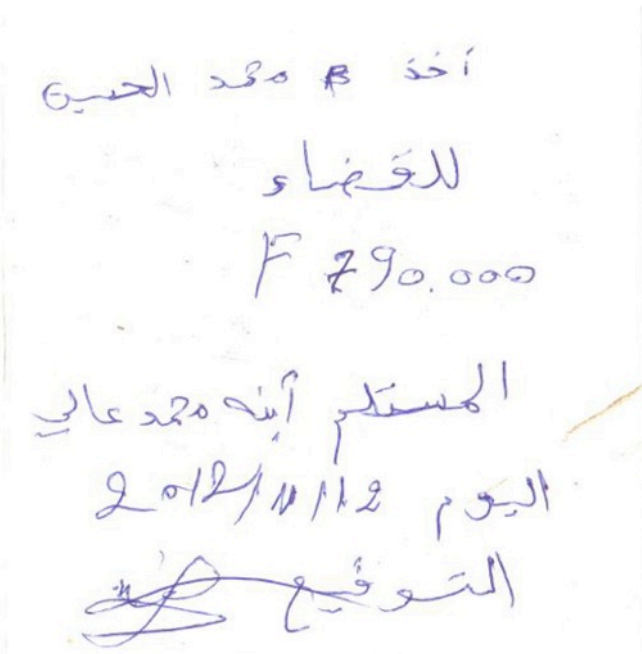 أخذ محمد الحسين
للقضاء
F 790.000
المستلم أبنه محمد عالي
اليوم 2012/11/12
التوقيع